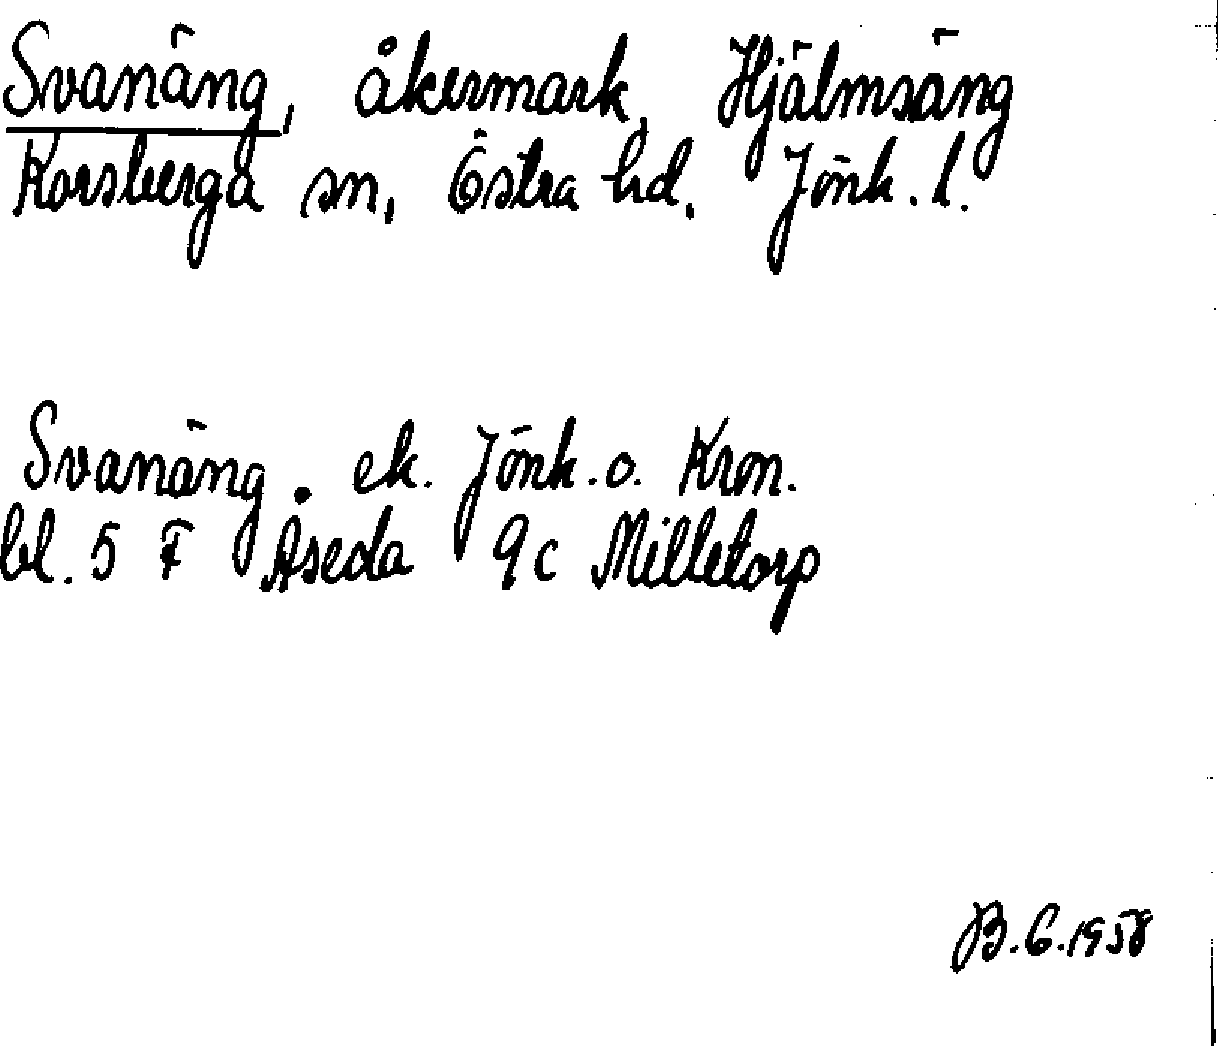 Svanäng, åkermark, Hjälmsäng
Korsberga sn, Östra hd. Jönk. l.
Svanäng. ek. Jönk. o. Kron.
bl. 5 F Åseda 9c Milletorp
B. G. 1958